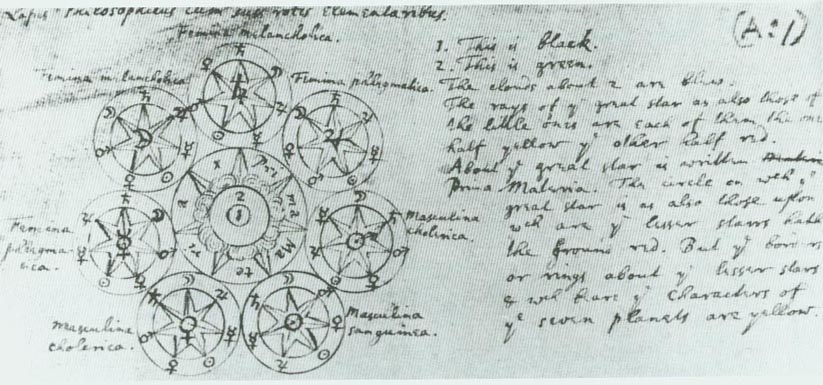 Lapis Philosophicus cum suis rotis elementaribus.
(A:1)
Femina melancholica.
Femina melancholica
Femina phlegmatica.
Femina phlegmatica.
Masculina cholerica.
masculina cholerica.
Masculina sanguinea.
Prima Materia
2
1
1. This is black.
2. This is green.
The clouds about 2 are blew.
The rays of yᵉ great star as also those of
the little ones are each of them the one
half yellow yᵉ other half red.
About yᵉ great star is written
Prima Materia. The circle on wᶜʰ yᵉ
great star is as also those upon
wᶜʰ are yᵉ lesser starrs hath
the ground red. But yᵉ borders
or rings about yᵉ lesser stars
& wᶜʰ beare yᵉ characters of
yᵉ seven planets are yellow.